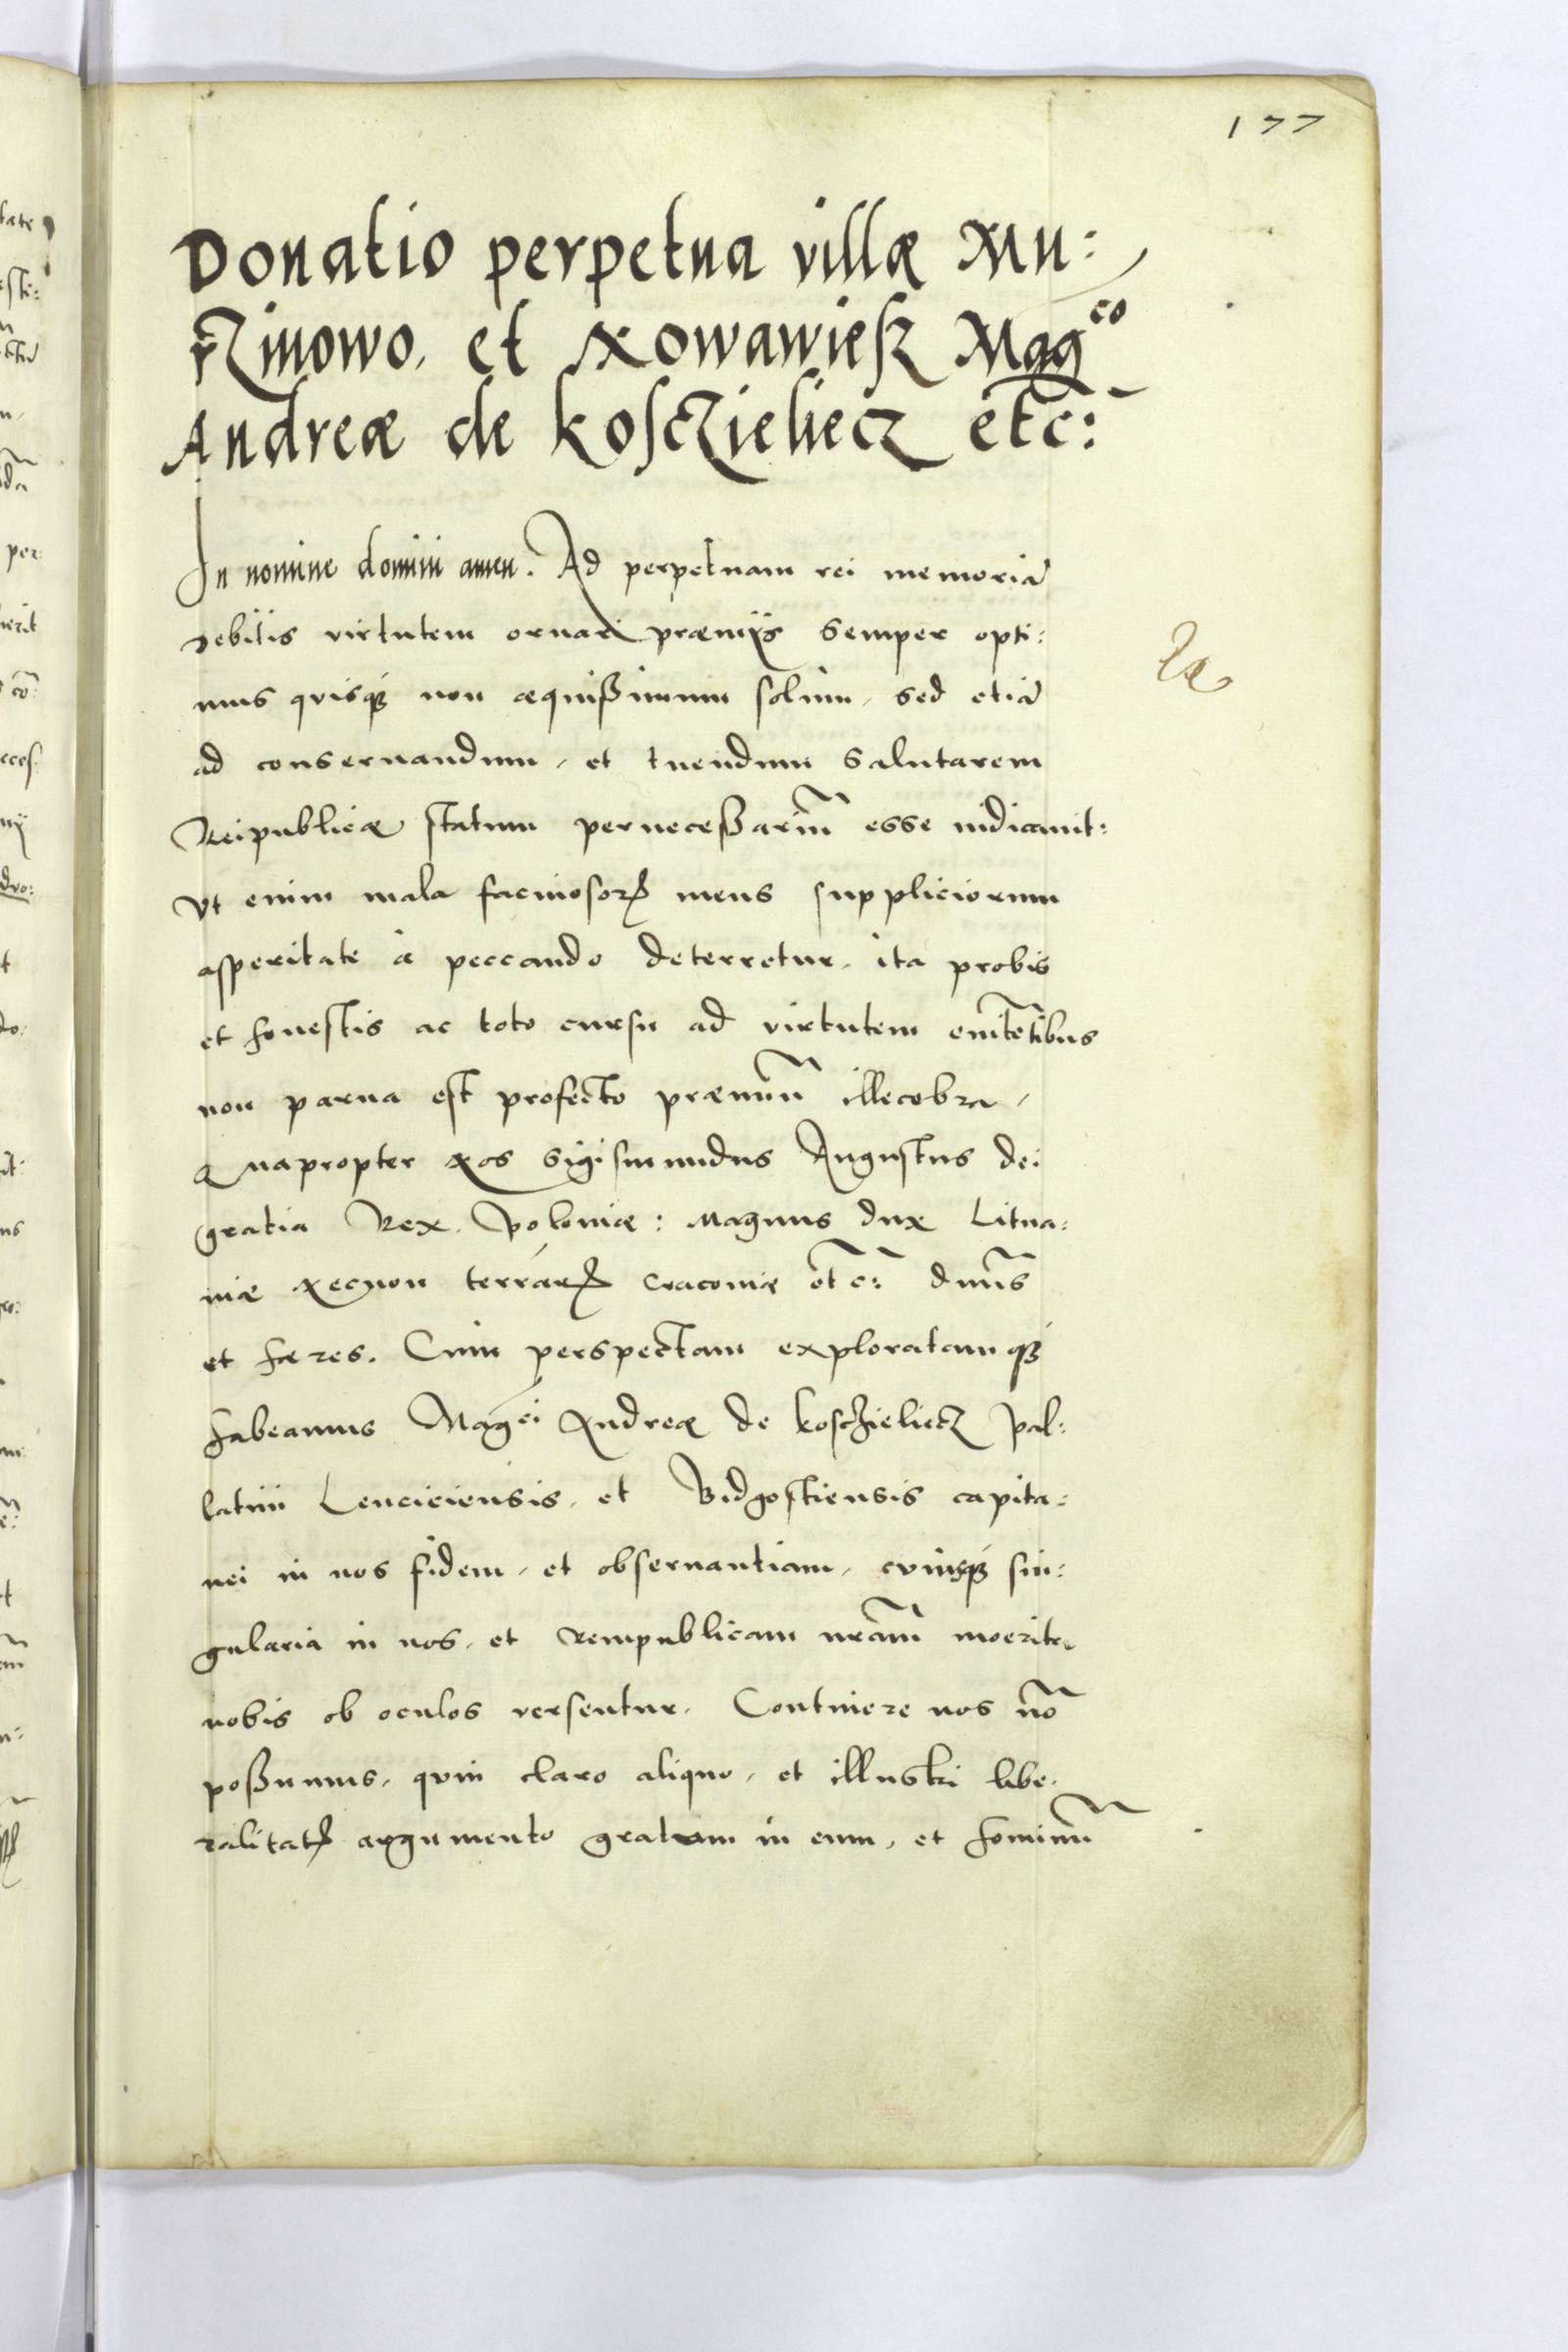 177
Donatio perpetua villæ Mu:
rzinowo, et Nowawiesz Mag^co
Andreæ de Kosczieliecz etc:
In nomine domini amen. Ad perpetuam rei memoriã
debitis virtutem ornari præmijs semper opti:
mus quisq3 non æquißimum solum, sed etiã
ad conseruandum, et tuendum salutarem
Reipublicæ statum perneceßariũ esse iudicauit:
Vt enim mala facinosorꝭ mens suppliciorum
asperitate à peccando deterretur, ita probis
et honestis ac toto cursu ad virtutem enitẽtibus
non parua est profecto præmiũ illecebra,
Quapropter Nos Sigismundus Augustus dei
gratia Rex Poloniæ: Magnus dux Litua:
niæ Necnon terrarꝭ Cracoviæ etc: dñus
et hæres. Cum perspectam exploratamq3
habeamus Mag^ci Andreæ de Kosczieliecz Pal:
latini Lenciciensis, et Bidgostiensis capita:
nei in nos fidem, et obseruantiam, cuiusq3 sin:
gularia in nos, et Rempublicam nrãm merita
nobis ob oculos versentur. Continere nos nõ
poßumus, quin claro aliquo, et illustri libe,
ralitatꝭ argumento gratum in eum, et hominũ